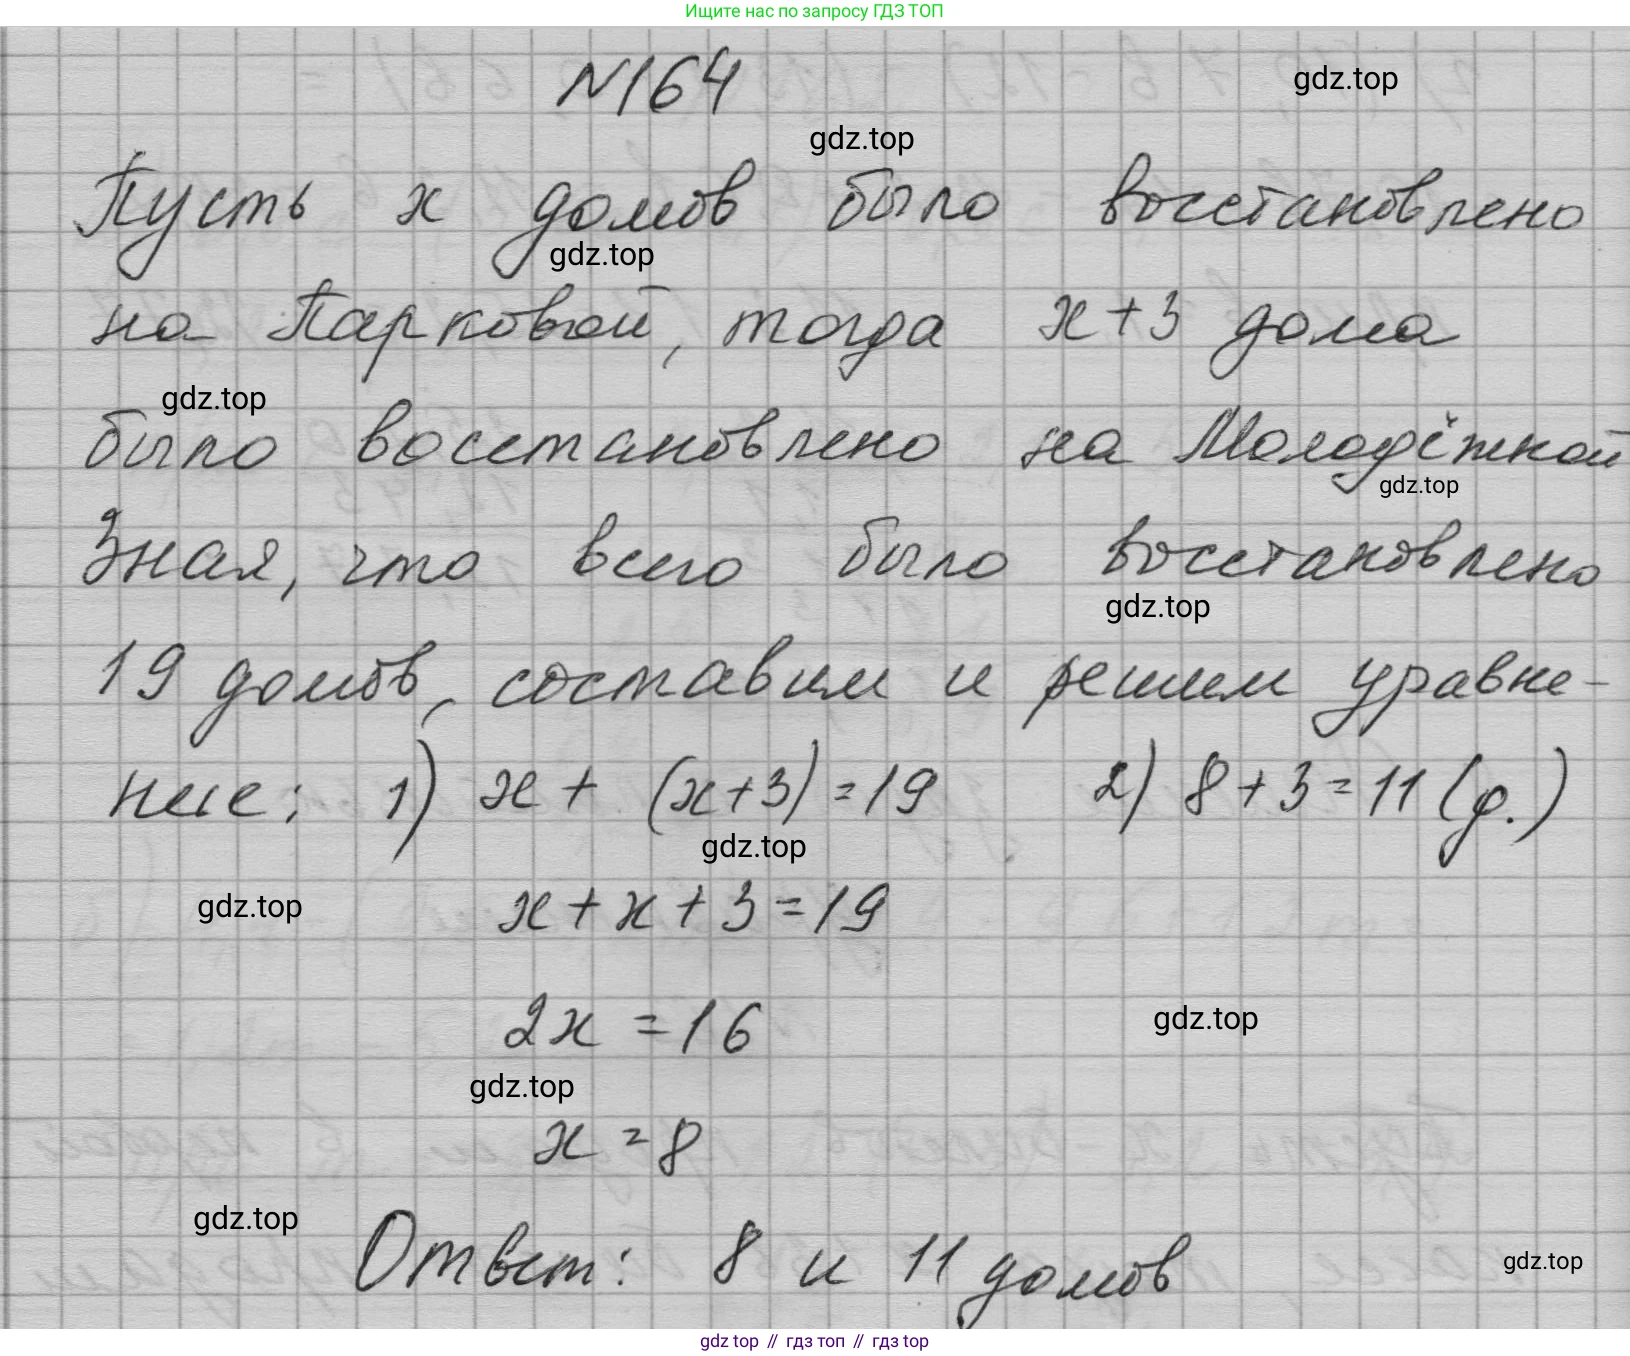 Ищите нас по запросу ГДЗ ТОП
№164
gdz.top
gdz.top
Пусть х домов было восстановлено
gdz.top
на Парковой, тогда х+3 дома
gdz.top
было восстановлено на Молодёжной
gdz.top
Зная, что всего было восстановлено
gdz.top
19 домов, составим и решим уравне-
ние: 1) х + (х+3) = 19 2) 8+3=11 (д.)
gdz.top
gdz.top
х+х+3=19
2х = 16
gdz.top
gdz.top
х = 8
gdz.top
Ответ: 8 и 11 домов
gdz.top
gdz top // гдз топ // гдз top